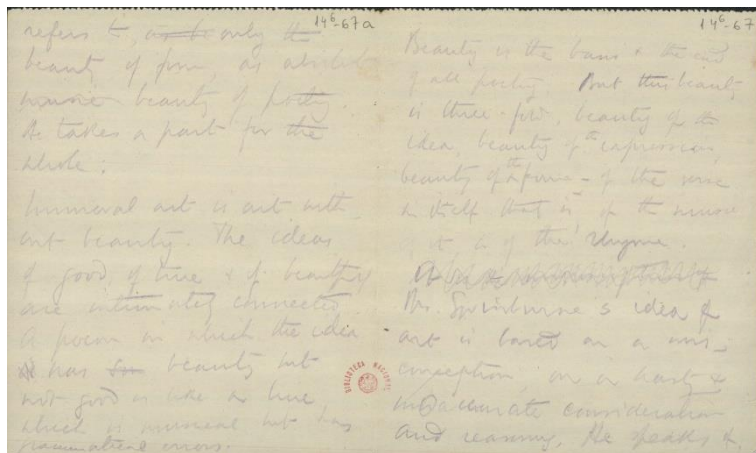 14⁶-67a
refers to only the
beauty of form, as absolute
music beauty of poetry.
He takes a part for the
whole:
Immoral art is art with
out beauty. The ideas
of good, of true & of beautiful
are intimately connected.
A poem in which the idea
has beauty but
not good is like a line
which is musical but has
grammatical errors.
14⁶-67
Beauty is the basis & the end
of all poetry. But this beauty
is three-fold, beauty of the
idea, beauty of the expression,
beauty of the form - of the verse
in itself that is of the music
of it & of the rhyme.
Mr. Swinburne's idea of
art is based on a mis-
conception, on a hasty &
inaccurate consideration
and reasoning. He speaks &
BIBLIOTECA NACIONAL